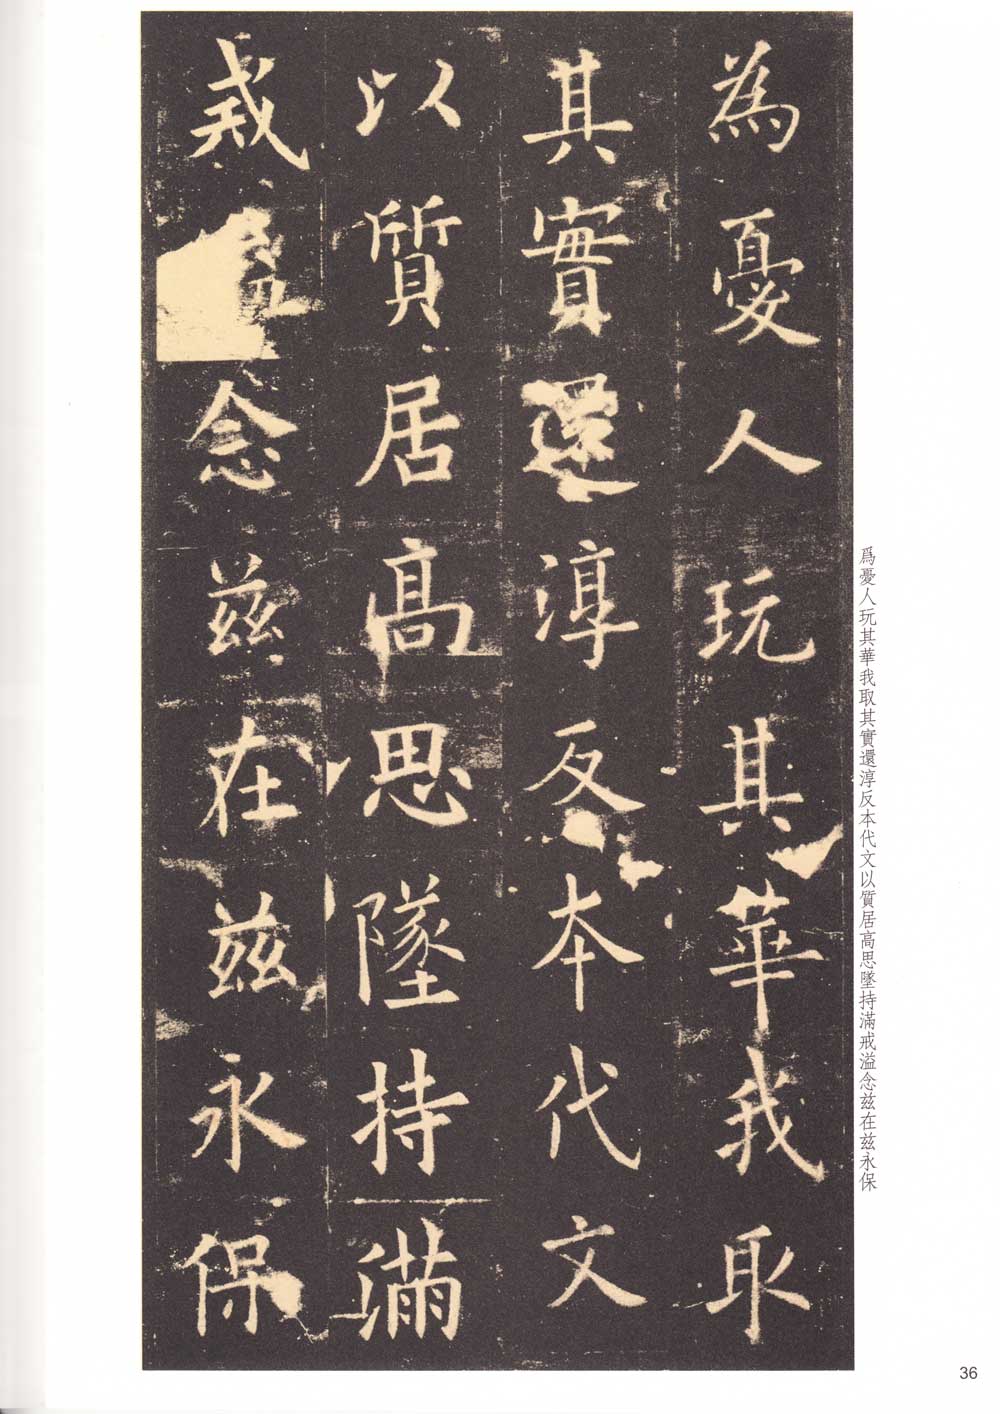 為憂人玩其華我取
其實還淳反本代文
以質居高思墜持滿
戒溢念兹在兹永保
爲憂人玩其華我取其實還淳反本代文以質居高思墜持滿戒溢念兹在兹永保
36